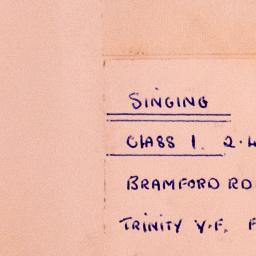 SINGING
CLASS 1. 2.4
BRAMFORD RD
TRINITY Y.F. F